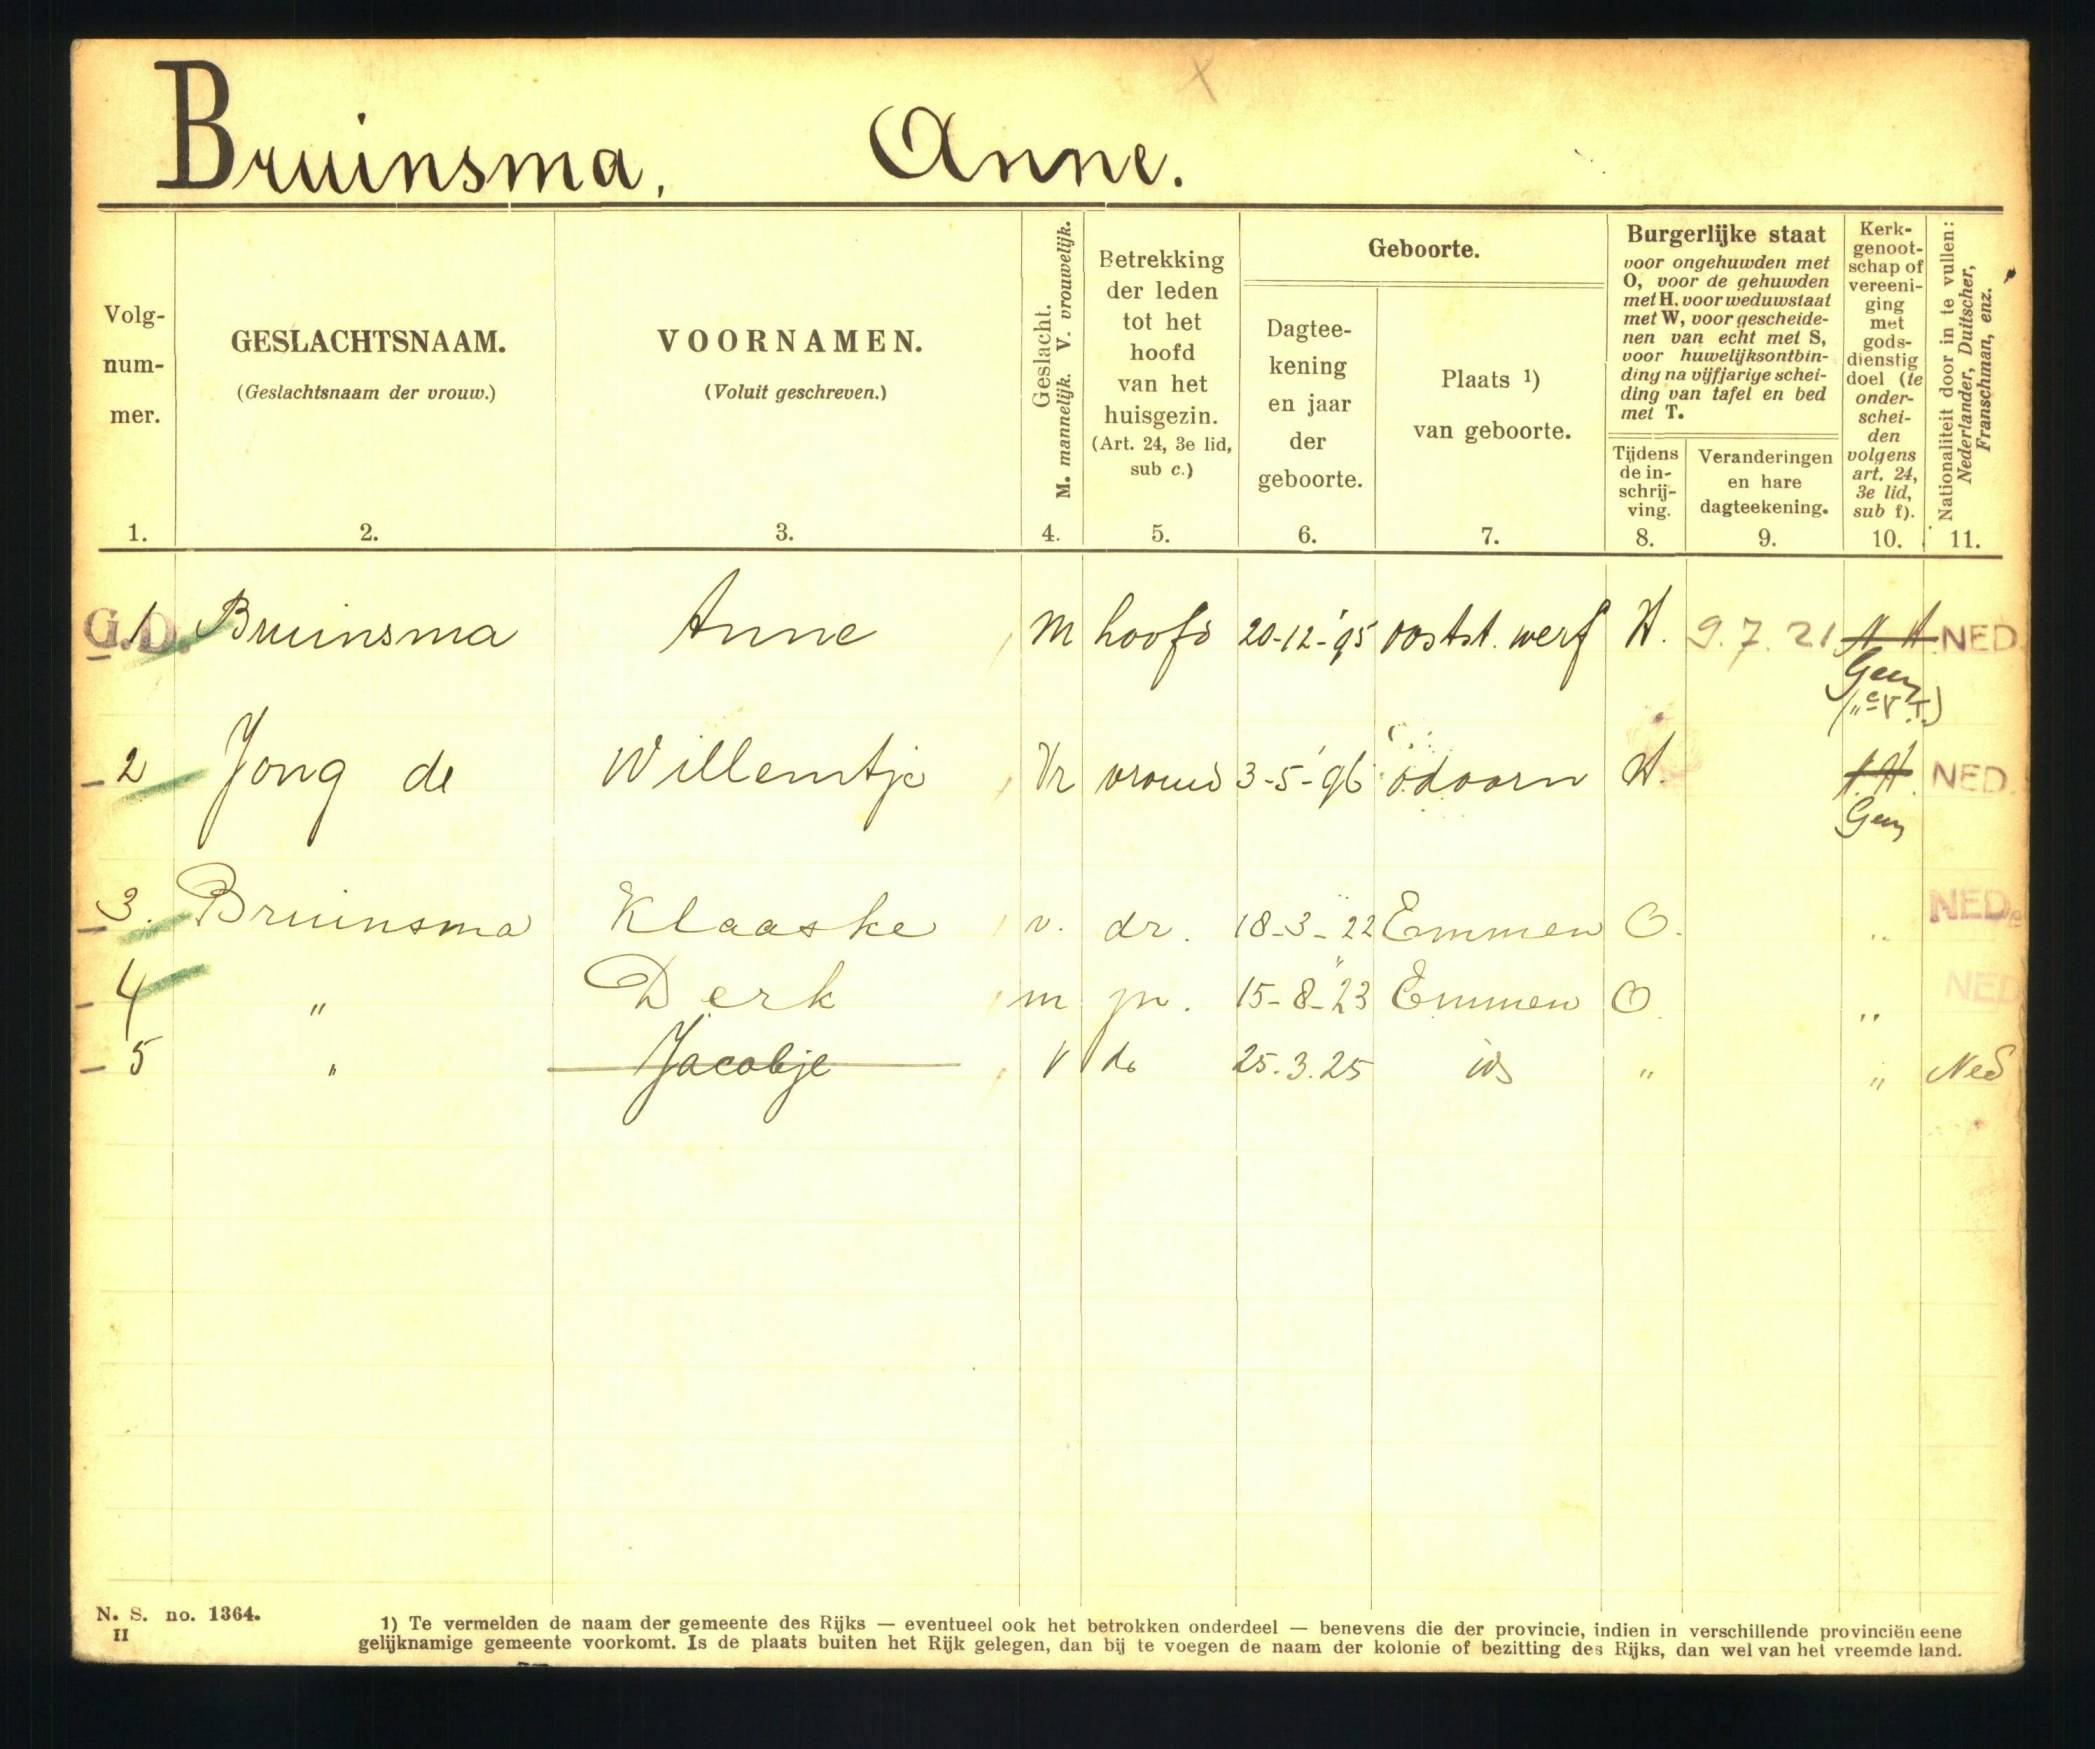 Bruinsma, Anne.
Volg-
num-
mer.
1.
GESLACHTSNAAM.
(Geslachtsnaam der vrouw.)
2.
VOORNAMEN.
(Voluit geschreven.)
3.
Geslacht.
M. mannelijk. V. vrouwelijk.
4.
Betrekking
der leden
tot het
hoofd
van het
huisgezin.
(Art. 24, 3e lid,
sub c.)
5.
Geboorte.
Dagtee-
kening
en jaar
der
geboorte.
6.
Plaats 1)
van geboorte.
7.
Burgerlijke staat
voor ongehuwden met
O, voor de gehuwden
met H, voor weduwstaat
met W, voor gescheide-
nen van echt met S,
voor huwelijksontbin-
ding na vijfjarige schei-
ding van tafel en bed
met T.
Tijdens
de in-
schrij-
ving.
8.
Veranderingen
en hare
dagteekening.
9.
Kerk-
genoot-
schap of
vereeni-
ging
met
gods-
dienstig
doel (te
onder-
schei-
den
volgens
art. 24,
3e lid,
sub f).
10.
Nationaliteit door in te vullen:
Nederlander, Duitscher,
Franschman, enz.
11.
G.D. 1 Bruinsma Anne M hoofd 20-12-'95 Oostst. werf H. 9.7.21 NED.
2 Jong de Willemtje Vr vrouw 3-5-'96 Odoorn H. NED.
3. Bruinsma Klaaske v. dr. 18-3-22 Emmen O. ,, NED.
4 " Derk m zn. 15-8-23 Emmen O. ,, NED
5 " Jacobje V do 25.3.25 id " " Ned
N. S. no. 1364.
II
1) Te vermelden de naam der gemeente des Rijks — eventueel ook het betrokken onderdeel — benevens die der provincie, indien in verschillende provinciën eene
gelijknamige gemeente voorkomt. Is de plaats buiten het Rijk gelegen, dan bij te voegen de naam der kolonie of bezitting des Rijks, dan wel van het vreemde land.